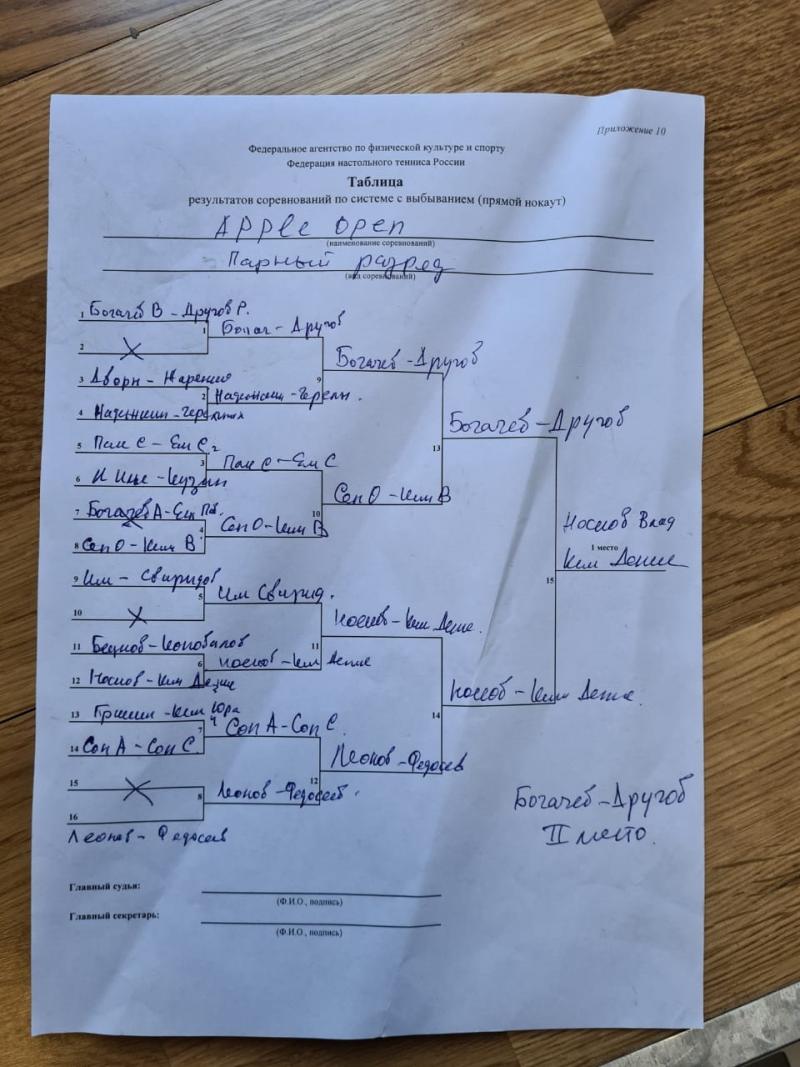 Приложение 10
Федеральное агентство по физической культуре и спорту
Федерация настольного тенниса России
Таблица
результатов соревнований по системе с выбыванием (прямой нокаут)
Apple open
(наименование соревнований)
Парный разряд
(вид соревнований)
1 Богачев В - Другов Р.
2
3 Дворн -
4
5 Пак С - Ем С
6
7 Богачев А - Ем
8 Сон О - Ким В
9 Им - Свиридов
10
11 - Коновалов
12 Носков - Ким Денис
13 Гришин - Ким Юра
14 Сон А - Сон С
15
16
Леонов - Федосеев
1 Богач - Другов
2
3 Пак С - Ем С
4 Сон О - Ким В
5 Им Свирид.
6 Носков - Ким Денис
7 Сон А - Сон С
8 Леонов - Федосеев
9 Богачев - Другов
10 Сон О - Ким В
11 Носков - Ким Денис.
12 Леонов - Федосеев
13 Богачев - Другов
14 Носков - Ким Денис.
15
Носков Влад
1 место
Ким Денис
Богачев - Другов
II место.
Главный судья:
(Ф.И.О., подпись)
Главный секретарь:
(Ф.И.О., подпись)